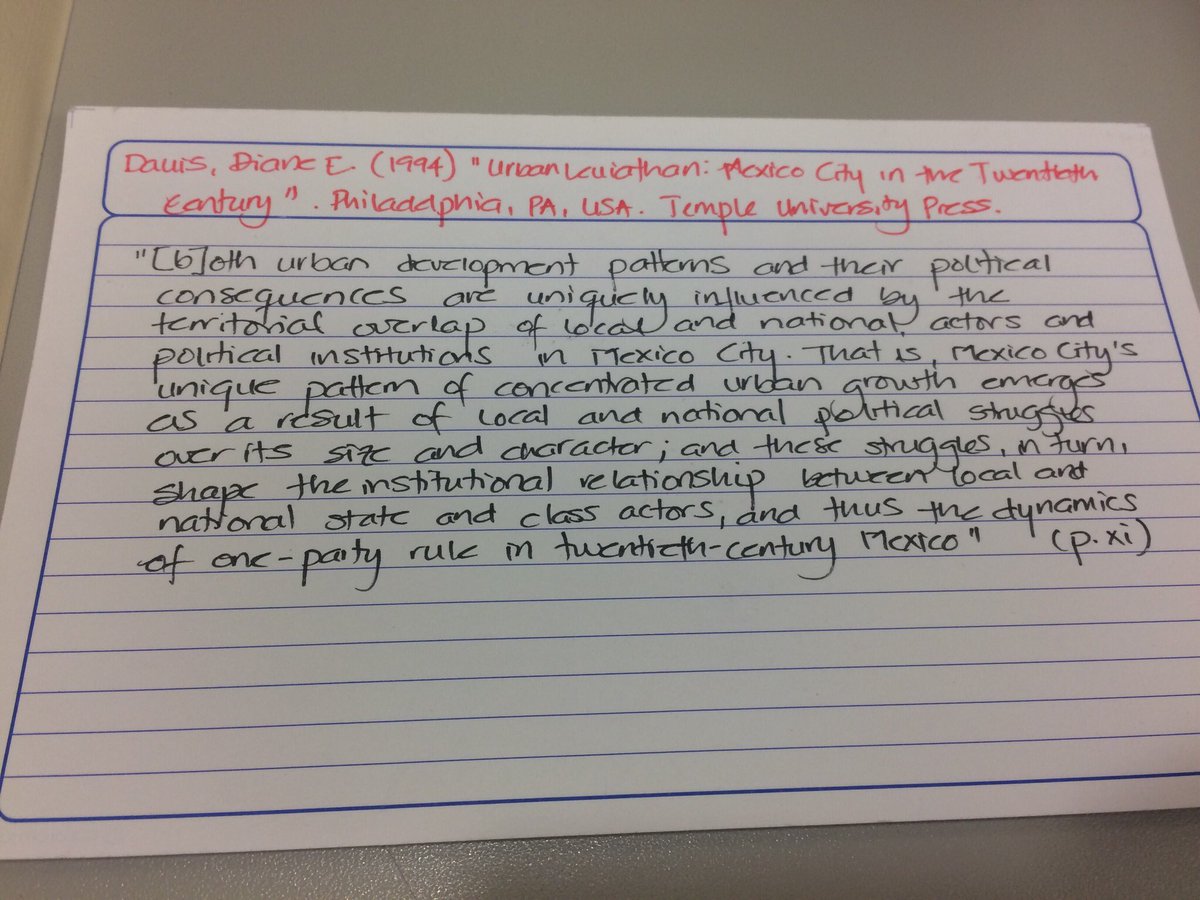 Davis, Diane E. (1994) "Urban Leviathan: Mexico City in the Twentieth
Century". Philadelphia, PA, USA. Temple University Press.
"[b]oth urban development patterns and their political
consequences are uniquely influenced by the
territorial overlap of local and national actors and
political institutions in Mexico City. That is, Mexico City's
unique pattern of concentrated urban growth emerges
as a result of local and national political struggles
over its size and character; and these struggles, in turn,
shape the institutional relationship between local and
national state and class actors, and thus the dynamics
of one-party rule in twentieth-century Mexico" (p.xi)